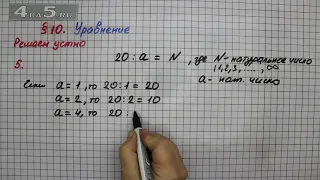 4 fa5.ru
§10. Уравнение
Решаем устно
5.
20 : a = N, где N-натуральное число
1,2,3, ...., ∞
a - нат. число
Если a = 1, то 20 : 1 = 20
a = 2, то 20 : 2 = 10
a = 4, то 20 :